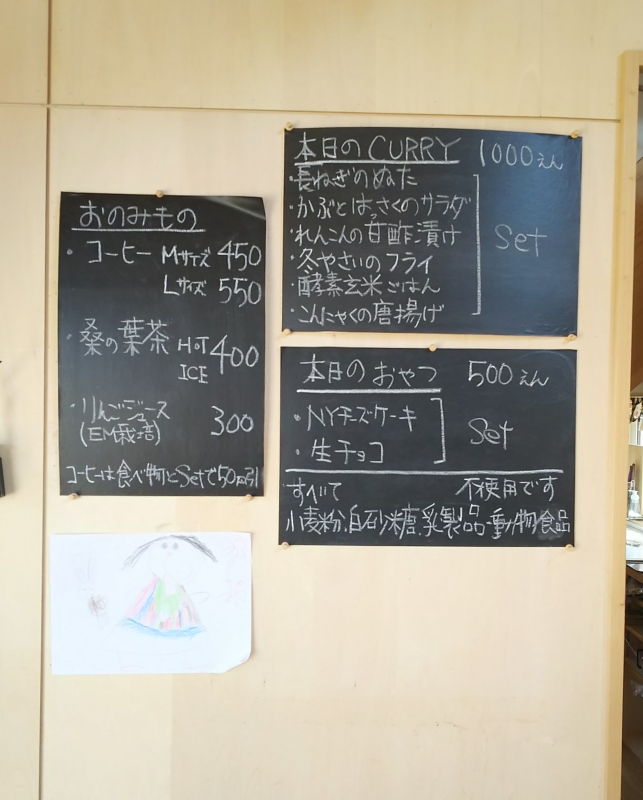 おのみもの
・コーヒー Mサイズ 450
Lサイズ 550
・桑の葉茶 HOT 400
ICE
・りんごジュース 300
(EM栽培)
コーヒーは食べ物とSetで50円引
本日のCURRY 1000えん
・長ねぎのぬた
・かぶとはっさくのサラダ
・れんこんの甘酢漬け
・冬やさいのフライ
・酵素玄米ごはん
・こんにゃくの唐揚げ
Set
本日のおやつ 500えん
・NYチーズケーキ
・生チョコ
Set
すべて 不使用です
小麦粉.白砂糖.乳製品・動物食品